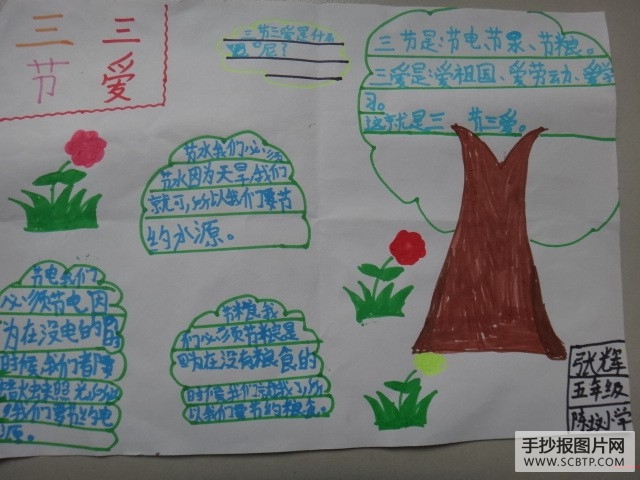 三 三
节 爱
三节三爱是什么
呢？
三节是：节电、节泉、节粮。
三爱是：爱祖国、爱劳动、爱学
习。
这就是三 节三爱。
节水我们必须
节水因为天旱我们
就可,所以我们要节
约水源。
节电我们
必须节电,因
为在没电的
时候我们着
火去来照光,
我们要节约电
源。
节粮我
们必须节粮是
因为在没有粮食的
时候我们就饿了,所
以我们要节约粮食。
张辉
五年级
小学
手抄报图片网
WWW.SCBTP.COM